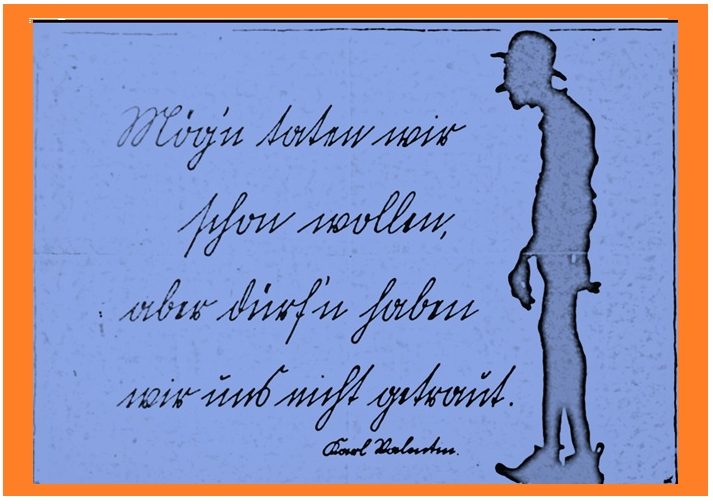 Mög'n taten wir
schon wollen,
aber dürf'n haben
wir uns nicht getraut.
Karl Valentin.